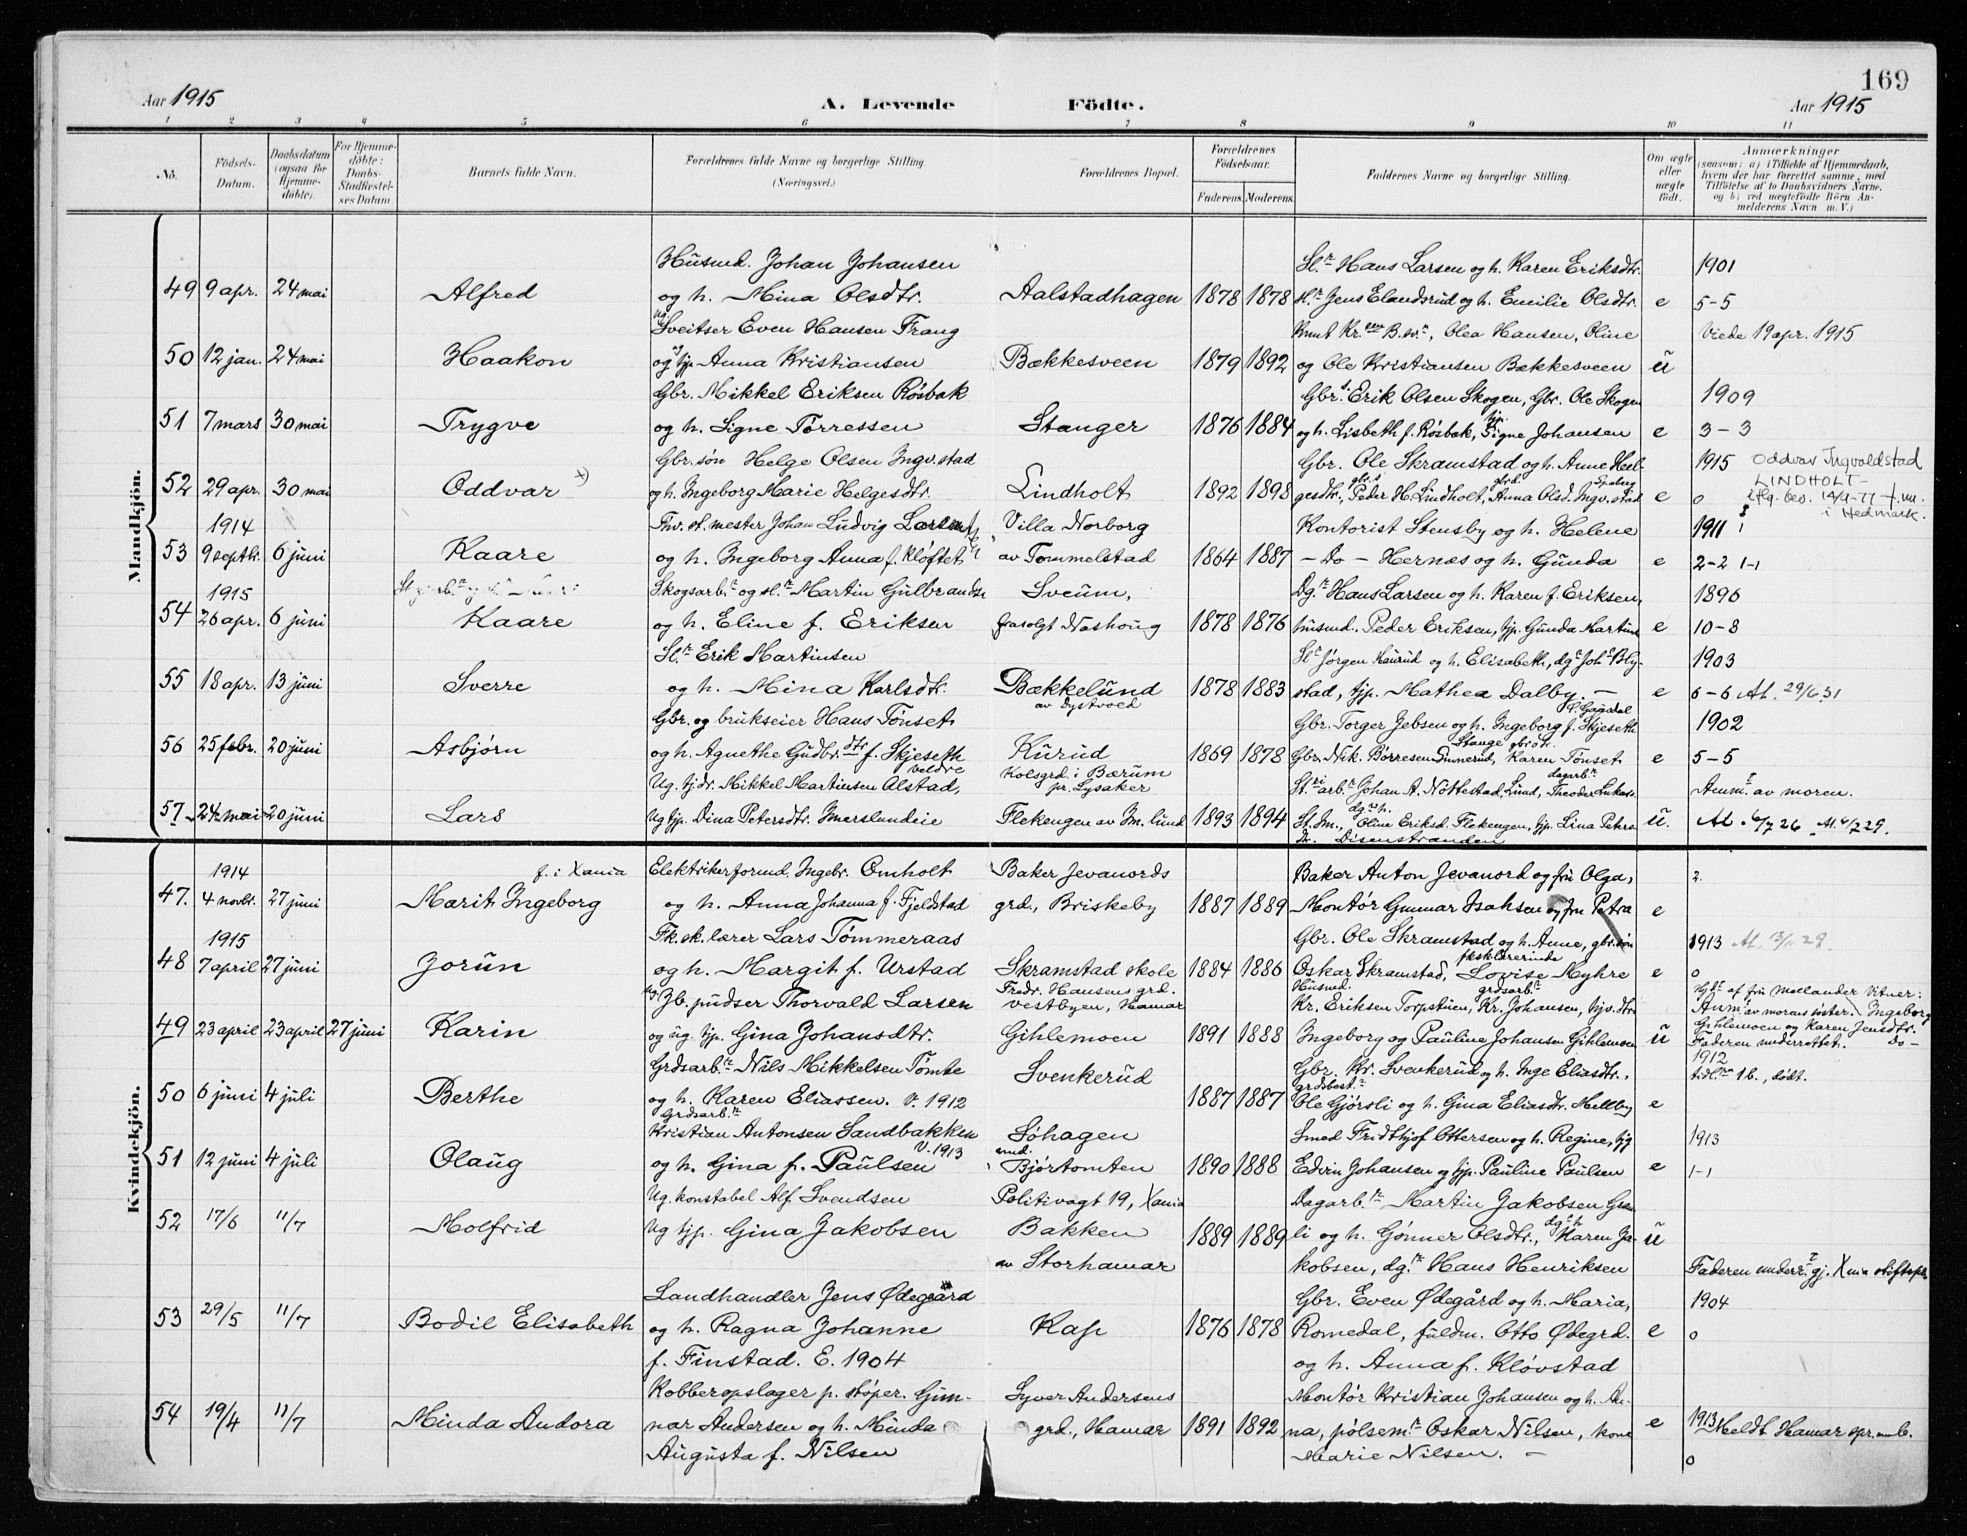 169
Aar 1915 A. Levende Födte. Aar 1915
1 2 3 4 5 6 7 8 9 10 11
No. Födsels-Datum. Daabsdatum (ogsaa for Hjemme-döbte). For Hjemme-döbte: Daabs-Stadfæstel-ses Datum. Barnets fulde Navn. Forældrenes fulde Navne og borgerlige Stilling. (Næringsvei.) Forældrenes Bopæl. Forældrenes Födselsaar. Faderens Moderens Faddernes Navne og borgerlige Stilling. Om ægte eller uægte födt. Anmærkninger (saasom: a) i Tilfælde af Hjemmedaab, hvem der har forrettet samme, med Tilföielse af to Daabsvidners Navne. og b) ved uægtefödte Börn An-melderens Navn m. V.)
Mandkjön.
Husmd. Johan Johansen Sl.r Hans Larsen og h. Karen Eriksdtr. 1901
49 9 apr. 24 mai Alfred og h. Mina Olsdtr. Aalstadhagen 1878 1878 sl.r Jens Elandsrud og h. Emilie Olsdtr. e 5-5
Ug. Sveitser Even Hansen Frang Olea Hansen, Oline Viede 19 apr. 1915
50 12 jan. 24 mai Haakon og tjp. Anna Kristiansen Bækkesveen 1879 1892 og Ole Kristiansen Bækkesveen u
Gbr. Mikkel Eriksen Røsbak Gbr. Erik Olsen Skogen, Gbr. Ole Skogen 1909
51 7 mars 30 mai Trygve og h. Signe Tørressen Stanger 1876 1884 og h. Lisbeth f. Røsbak, tjp. Signe Johansen e 3-3
Gbr.søn Helge Olsen Ingv.stad Gbr. Ole Skramstad og h. Anne Hel- 1915 Oddvar Ingvoldstad
52 29 apr. 30 mai Oddvar x) og h. Ingeborg Marie Helgesdtr. Lindholt 1892 1898 gesdtr., Peder H. Lindholt, Anna Olsd. Ingv.stad e 0 LINDHOLT - iflg. bev. 14/9-77 f.m. i Hedmark.
1914 Johan Ludvig Larsen Villa Norborg Kontorist Stensby og h. Helene 1911
53 9 septbr. 6 juni Kaare og h. Ingeborg Anna f. Kløftet av Tommelstad 1864 1887 - Do - Hernæs og h. Gunda e 2-2 1-1
1915 Skogsarb.r og sl.r Martin Gulbrandsen Sveum, Dg.r Hans Larsen og h. Karen f. Eriksen, 1896
54 26 apr. 6 juni Kaare og h. Eline f. Eriksen frasolgt Nashoug 1878 1876 husmd. Peder Eriksen, tjp. Gunda Martins e 10-8
Sl.r Erik Martinsen Sl.r Jørgen Kurud og h. Elisabeth, dg.r Joh. Bly- 1903
55 18 apr. 13 juni Sverre og h. Mina Karlsdtr. Bækkelund av Dystvold 1878 1883 stad, tjp. Mathea Dalby. - e 6-6 At. 29/6 31
Gbr. og brukseier Hans Tønset Gbr. Torger Jebsen og h. Ingeborg f. Skjeseth 1902
56 25 febr. 20 juni Asbjørn og h. Agnethe Gudbr.dtr f. Skjeseth Kurud 1869 1878 Gbr. Nik. Børresen Stange, Karen Tønset e 5-5
Ug. tj.dr. Mikkel Martinsen Alstad, Veldre Kolsgrd. i Bærum pr. Lysaker St.arb.r Johan A. Nøttestad, Lund, Anm. av moren.
57 24 mai 20 juni Lars Ug tjp. Dina Petersdtr. Imerslundeie Flekengen av Im. lund 1893 1894 Oline Eriksd. Flekengen, tjp. Lina Peters- u. At. 6/7 26 At. 4/2 29.
dtr. Disenstranden
Kvindekjön.
1914 f. i Xania Elektrikerformd. Ingebr. Omholt Baker Jevanords Baker Anton Jevanord og fru Olga, 2.
47. 4 novbr. 27 juni Marit Ingeborg og h. Anna Johanna f. Fjeldstad grd., Briskeby 1887 1889 Montør Gunnar Isaksen og fru Petra e
1915 Fk.sk.lærer Lars Tømmeraas Gbr. Ole Skramstad og h. Anne, gbr.søn 1913
48 7 april 27 juni Jorun og h. Margit f. Urstad Skramstad skole 1884 1886 Oskar Skramstad, fksklærerinde Lovise Myhre e 0
ug. Jb. pudser Thorvald Larsen Fredr. Hansens grd. Vestbyen, Hamar Husmd. Kr. Eriksen Torpstuen, grdsarb.r Kr. Johansen, Hjd. af fru Mollander Vitner:
49 23 april 23 april 27 juni Karin og ug. tjp. Gina Johansdtr. Gihlemoen 1891 1888 Ingeborg og Pauline Johansen Gihlemoen u Anm. av morens søster. Ingeborg Gihlemoen og Karen Jensdtr. Faderen underrettet. Do -
Grdsarb.r Nils Mikkelsen Tomte Svenkerud Gbr. Kr. Svenkerud og h. Inge Eliasdtr., 1912
50 6 juni 4 juli Berthe og h. Karen Eliassen. V. 1912 1887 1887 Ole Gjørsli og h. Gina Eliasdtr. Mellby e 1 b., dødt.
Grdsarb.r Kristian Antonsen Sandbakken Sôhagen Smed Fridthjof Ottersen og h. Regine, 1913
51 12 juni 4 juli Olaug og h. Gina f. Paulsen V. 1913 Bjørtomten 1890 1888 Edvin Johansen og tjp. Pauline Paulsen e 1-1
Ug. konstabel Alf Svendsen Politivagt 19, Xania Dagarb.r Martin Jakobsen Gran-
52 17/6 11/7 Molfrid Ug tjp. Gina Jakobsen Bakken 1889 1889 li og h. Gønner Olsdtr., Karen Ja- u
av Storhamar kobsen, dg.r Hans Henriksen Faderen underr. gj. Xnia stiftspr.
Landhandler Jens Ødegaard Gbr. Even Ødegård og h. Maria, 1904
53 29/5 11/7 Bodil Elisabeth og h. Ragna Johanne Kap 1876 1878 Romedal, fuldm. Otto Ødegrd. e 0
f. Finstad. E. 1904 og h. Anna f. Kløvstad
Kobberopslager p. støper. Gun- Syver Andersens Montør Kristian Johansen og h. An-
54 19/4 11/7 Minda Andora nar Andersen og h. Minda grd., Hamar 1891 1892 na, pølsem.r Oskar Nilsen, kone e 1913 Meldt Hamar spr.emb.
Augusta f. Nilsen Marie Nilsen. - 0